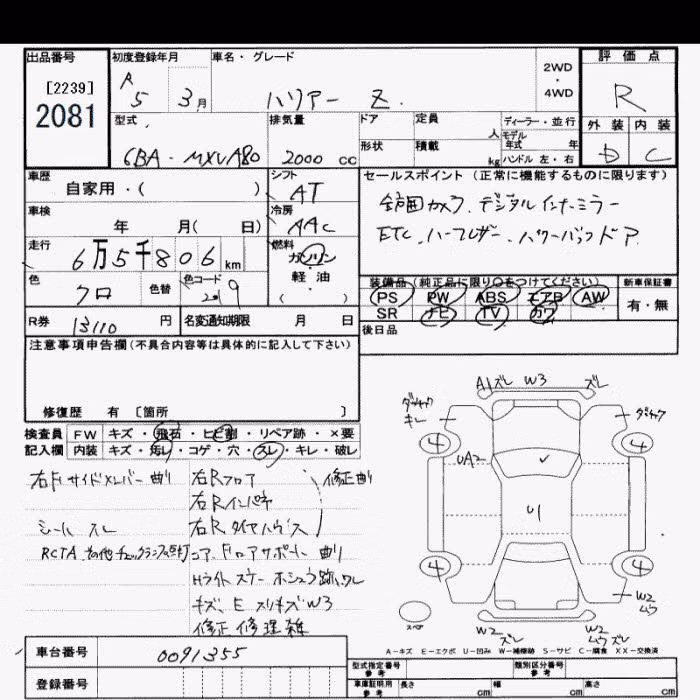 出品番号
[2239]
2081
初度登録年月
R 5 3月
車名・グレード
ハリアー Z
2WD
・
4WD
評価点
R
外装 内装
D C
型式
6BA-MXUA80
排気量
2000 cc
ドア
定員 人
形状
積載 kg
ディーラー・並行
モデル年式 年
ハンドル 左・右
車歴
自家用・( )
シフト
AT
車検
年 月( 日)
冷房
AAC
走行
6万5千806km
燃料
ガソリン
軽・油
( )
色
クロ
色替
色コード
219
R券 13110 円
名変通知期限 月 日
セールスポイント (正常に機能するものに限ります)
全周囲カメラ. デジタルインナーミラー
ETC. ハーフレザー. パワーバックドア
装備品 (純正品に限り○をつけてください)
PS PW ABS エアB AW
SR ナビ TV カワ
新車保証書
有・無
後日品
注意事項申告欄(不具合内容等は具体的に記入して下さい)
修復歴 有 〔箇所 〕
検査員 FW キズ・飛石・ヒビ割・リペア跡・×要
記入欄 内装 キズ・汚レ・コゲ・穴・スレ・キレ・破レ
右Fサイドメンバー曲り
シートスレ
RCTA. その他チェックランプ点灯
右Rフロア
右Rインパネ
右Rタイヤハウス
修正曲り
コア. Fロアサポート 曲り
Hライト ステー ホシュウ跡. ワレ
キズ. E スリキズW3
修正 修理 雑
A1ズレ W3 ズレ
ダキャク
キレ
ダキャク
4 4
UA2
U1
4 4
W2
W2
ズレ
W2
スペア
A-キズ E-エクボ U-凹み W-補修跡 S-サビ C-腐食 XX-交換済
車台番号 0091355
登録番号
型式指定番号
参考
類別区分番号
参考
車庫証明用
参考
長さ cm 幅 cm 高さ cm